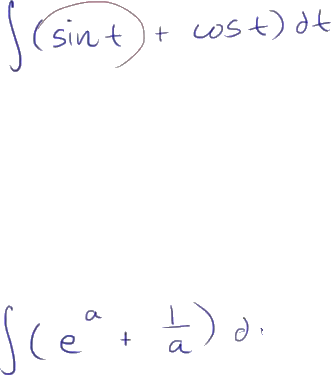 ∫(sin t + cos t) dt
∫(e^a + 1/a) d